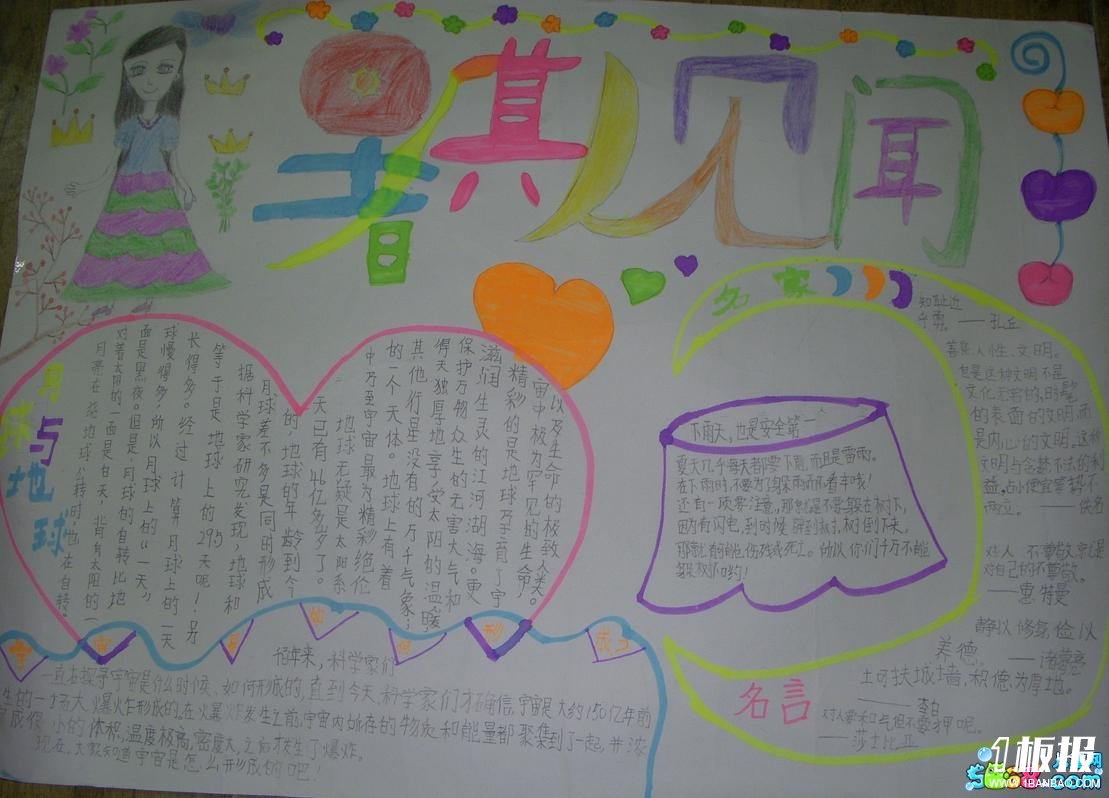 暑期见闻
月球与地球
月亮在绕地球公转时,也在自转
对着太阳的一面是白天,背着太阳的一
面是黑夜。但是,月球的自转比地
球慢得多,所以月球上的“一天”
长得多。经过计算月球上的一天
等于是地球上的29.5天呢!另
据科学家研究发现,地球和
月球差不多是同时形成
的,地球的年龄到今
天已有46亿多岁了。
地球无疑是太阳系
中乃至宇宙最为精彩绝伦
的一个天体。地球上有着
其他行星没有的万千气象;
得天独厚地享受太阳的温暖
保护万物众生的无害大气和
滋润生灵的江河湖海。更
精彩的是地球乃于首了宇
宙中极为罕见的生命,
以及生命的极致人类。
宇宙是如何形成
年来,科学家们
一直在探寻宇宙是什么时候、如何形成的,直到今天,科学家们才确信,宇宙是大约150亿年前
生的一场大爆炸形成的。在火爆炸发生之前,宇宙内所存的物质和能量都聚集到了一起,并浓
成很小的体积,温度极高,密度大,之后发生了爆炸。
现在,大家知道宇宙是怎么形成的吧!
名家
知耻近
乎勇。——孔丘
下雨天,也是安全第一
夏天几乎每天都要下雨,而且是雷雨。
在下雨时,不要为了躲雨而不看车哦!
还有一项要注意,那就是不要躲在树下,
因为有闪电,到时候,树倒下来,
所以你们千万不能
善良人性、文明。
也是这种文明不是
的表面的文明,而
是内心的文明。这种
不立。——佚名
对人不尊敬,就是
对自己的不尊敬。
——惠特曼
静以修身,俭以
养德。——诸葛亮
土可扶城墙,积德为厚地。
——李白
对人要和气,但不要狎昵。
——莎士比亚
名言
1板报
WWW.1BANBAO.COM